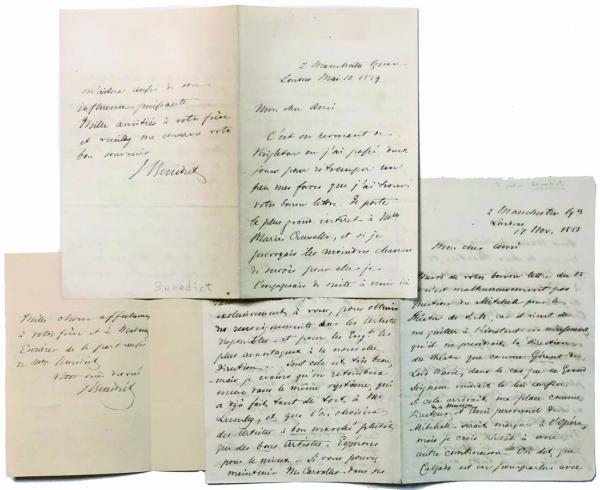 2 Manchester Square
Londres Mai 10. 1859
Mon cher Ami
C'est en revenant de
Brighton où j'ai passé deux
jours pour retremper un
peu mes forces que j'ai trouvé
votre bonne lettre. Je porte
le plus grand intérêt à Mlle
Marie Cruvelli, et si je
prévoyais les moindres chances
de succès pour elle je
l'engagerais de suite à venir ici
m'aidera aussi de son
influence puissante
Mille amitiés à votre frère
et veuillez me conserver votre
bon souvenir
J Benedict
Benedict
2 Manchester Sqre
Londres
17 Nov. 185
Mon cher Ami
de votre bonne lettre du 15
n'est malheureusement pas
question de Mitchell pour le
Théâtre de S.M. car il vient de
me quitter à l'instant en
qu'il ne prendrait la direction
du théâtre que comme Gérant de
Lord Ward, dans le cas que ce Grand
Seigneur voudrait le lui confier.
Si cela arrivait ma place comme
Directeur de la musique
et Chef personnel de
Mitchell serait marquée à l'espère,
mais je crois plutôt à une
autre combinaison. On dit que
Calzado est en pourparlers avec
exclusivement à vous, pour obtenir
de renseignements sur les Artistes
disponibles et pour les Engts les
plus avantageux à la nouvelle
direction... Tout cela est très beau
mais je crains qu'on retombera
encore dans le même système, qui
a déjà fait tant de tort, à Mr
Lumley, et que l'on choisira
des Artistes à bon marché plutôt
que des bons Artistes. Espérons
pour le mieux. Si vous pouvez
maintenir Me Carvalho dans ses
Milles choses affectueuses
à votre frère et à Madame
de la part
de Mme Benedict
Votre bien dévoué
J Benedict